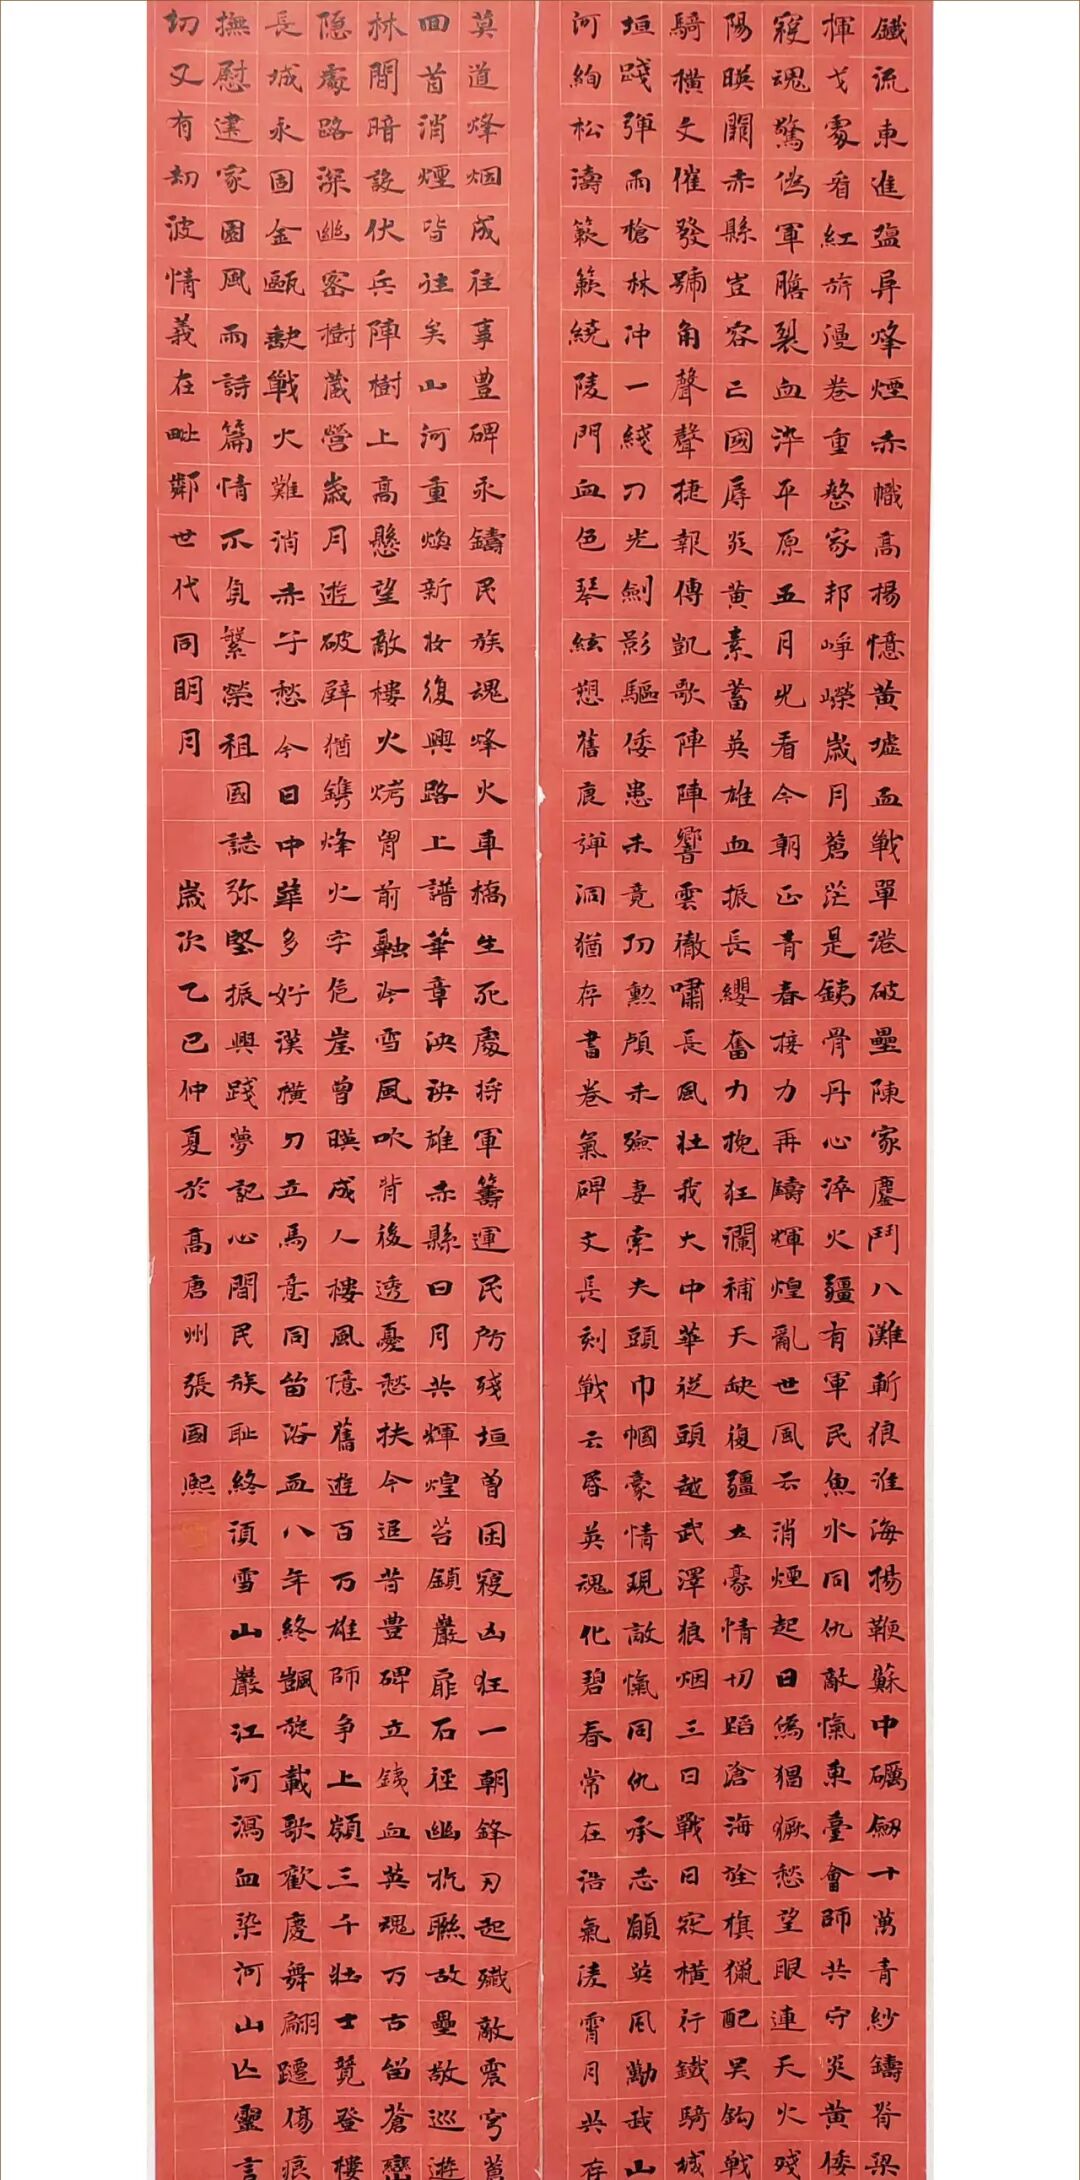 鐵流東進盐阜烽煙赤幟高揚憶黄墟血戰單港破壘陳家鏖鬥八灘斬狼淮海揚鞭蘇中礪劍十萬青紗鑄脊梁
揮戈處看紅旂漫卷重整家邦崢嶸歲月蒼茫是銕骨丹心淬火疆有軍民魚水同仇敵愾東臺會師共守炎黄倭
寇魂驚僞軍膽裂血淬平原五月光看今朝正青春接力再鑄輝煌亂世風云消煙起日僞猖獗愁望眼連天火殘
陽暎關赤縣豈容亡國辱炎黄素蓄英雄血振長纓奮力挽狂瀾補天缺復疆土豪情切蹈滄海旌旗獵配吴鈎戰
騎横戈催發號角聲聲捷報傳凱歌陣陣響雲徹嘯長風壯我大中華從頭越武澤狼烟三日戰日寇横行鐵騎城
垣踐彈雨槍林沖一綫刀光劍影驅倭患未竟功勲頋未殮妻索夫頭巾幗豪情現敵愾同仇承志願英風勵我山
河絢松濤簌簌繞陵門血色琴絃愬舊痕彈洞猶存書卷氣碑文長刻戰云昏英魂化碧春常在浩氣淩霄月共存
莫道烽烟成往事豊碑永鑄民族魂烽火車橋生死處将軍籌運民所殘垣曽困寇凶狂一朝鋒刃起殲敵震穹蒼
回首消煙皆往矣山河重煥新妝復興路上譜華章泱泱雄赤縣日月共輝煌苔鎖巖扉石径幽杭聯故壘敬巡遊
林間暗設伏兵陣樹上高懸望敵樓火烤胷前融冷雪風吹背後透憂愁扶今追昔豊碑立銕血英魂万古留蒼巒
隱處路深幽密樹蔵營歲月遊破壁猶鐫烽火字危崖曾暎成人樓風億舊遊百万雄師争上嶺三千壯士競登樓
長城永固金甌勲戰火難消赤子愁今日中華多好漢横刀立馬意同留浴血八年終凱旋載歌歡慶舞翩躚傷痕
撫慰建家園風雨詩篇情不負繁榮祖國誌弥堅振興踐夢記心間民族耻終湏雪山巖江河瀉血染河山亡靈言
切又有劫波情義在毗鄰世代同明月 歲次乙巳仲夏於高唐州張國熙